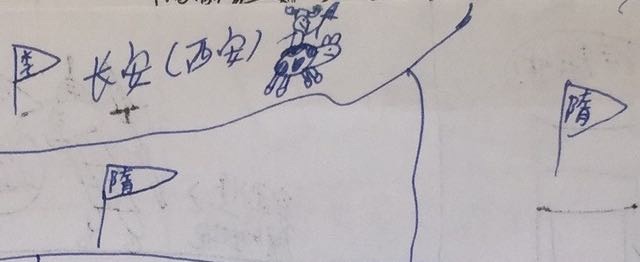 李
长安(西安)
隋
隋